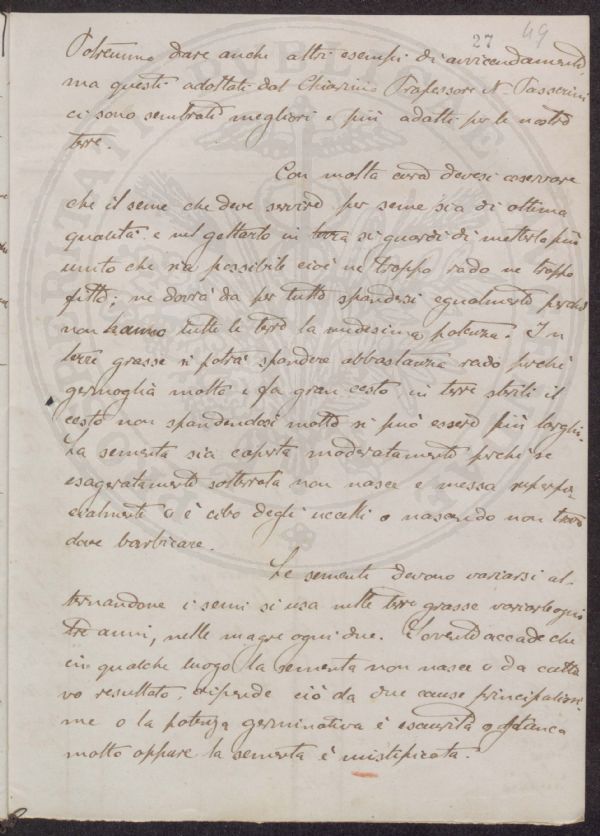 27 49
Potremmo dare anche altri esempi di avvicendamento,
ma questi adottati dal Chiarimo Professore N. Passerini
ci sono sembrati megliori e più adatti per le nostre
terre.
Con molta cura devesi osservare
che il seme che deve servire per seme sia di ottima
qualità e nel gettarlo in terra si guardi di metterlo più
unito che sia possibile cioè ne troppo rado ne troppo
fitto; ne dovrà da per tutto spandersi egualmente perchè
non hanno tutte le terre la medesima potenza. In
terre grasse si potrà spandere abbastanza rado perchè
germoglia molto e fa gran cesto in terre sterili il
cesto non spandendosi molto si può essere più larghi.
La sementa sia coperta moderatamente perchè se
esageratamente sotterrata non nasce e messa superfi-
cialmente o è cibo degli uccelli o nascendo non trova
dove barbicare.
Le sementi devono variarsi al-
ternandone i semi si usa nelle terre grasse variarle ogni
tre anni, nelle magre ogni due. Sovente accade che
in qualche luogo la sementa non nasce o da catti
vo resultato, dipende ciò da due cause principalissi-
me o la potenza germinativa è esaurita o
molto oppure la sementa è mistificata.